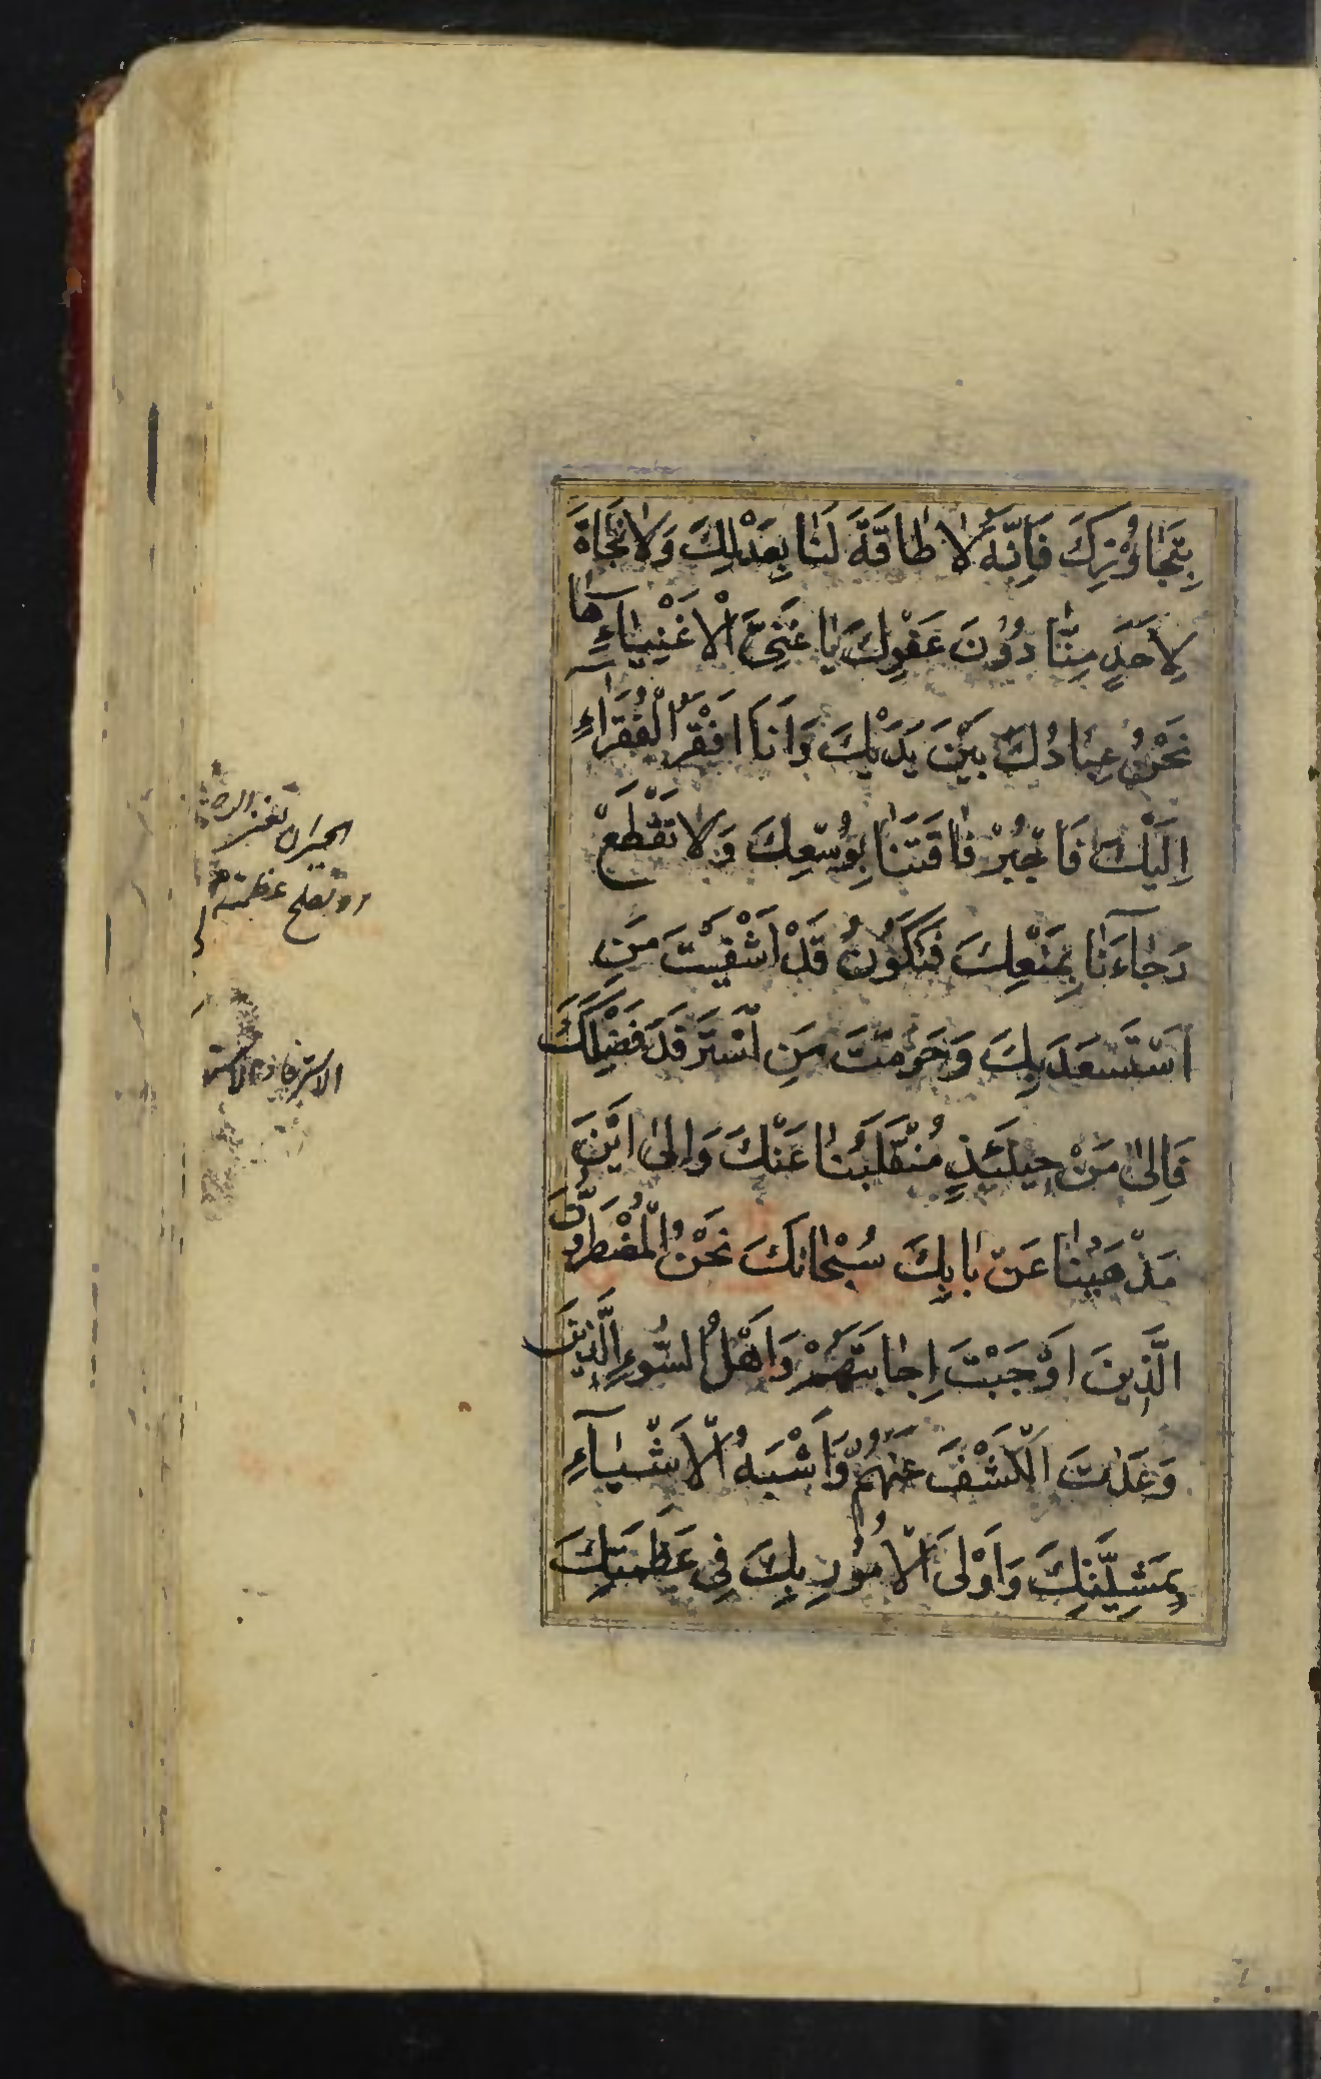 بِتَجَاوُزِكَ فَاِنَّهُ لَا طَاقَةَ لَنَا بِعَدْلِكَ وَلَا نَجَاةَ
لِاَحَدٍ مِنَّا دُوْنَ عَفْوِكَ يَا غَنِيَّ الْاَغْنِيَاءِ هَا
نَحْنُ عِبَادُكَ بَيْنَ يَدَيْكَ وَاَنَا اَفْقَرُ الْفُقَرَاءِ
اِلَيْكَ فَاجْبُرْ فَاقَتَنَا بِوُسْعِكَ وَلَا تَقْطَعْ
رَجَاءَنَا بِمَنْعِكَ فَتَكُوْنُ قَدْ اَشْقَيْتَ مَنِ
اسْتَسْعَدَ بِكَ وَحَرَمْتَ مَنِ اسْتَرْفَدَ فَضْلَكَ
فَاِلٰى مَنْ حِيْنَئِذٍ مُنْقَلَبُنَا عَنْكَ وَاِلٰى اَيْنَ
مَذْهَبُنَا عَنْ بَابِكَ سُبْحَانَكَ نَحْنُ الْمُضْطَرُّوْنَ
الَّذِينَ اَوْجَبْتَ اِجَابَتَهُمْ وَاَهْلُ السُّوءِ الَّذِينَ
وَعَدْتَ الْكَشْفَ عَنْهُمْ وَاَشْبَهُ الْاَشْيَآءِ
بِمَشِيَّتِكَ وَاَوْلَى الْاُمُوْرِ بِكَ فِي عَظَمَتِكَ
الجبران
عظمته